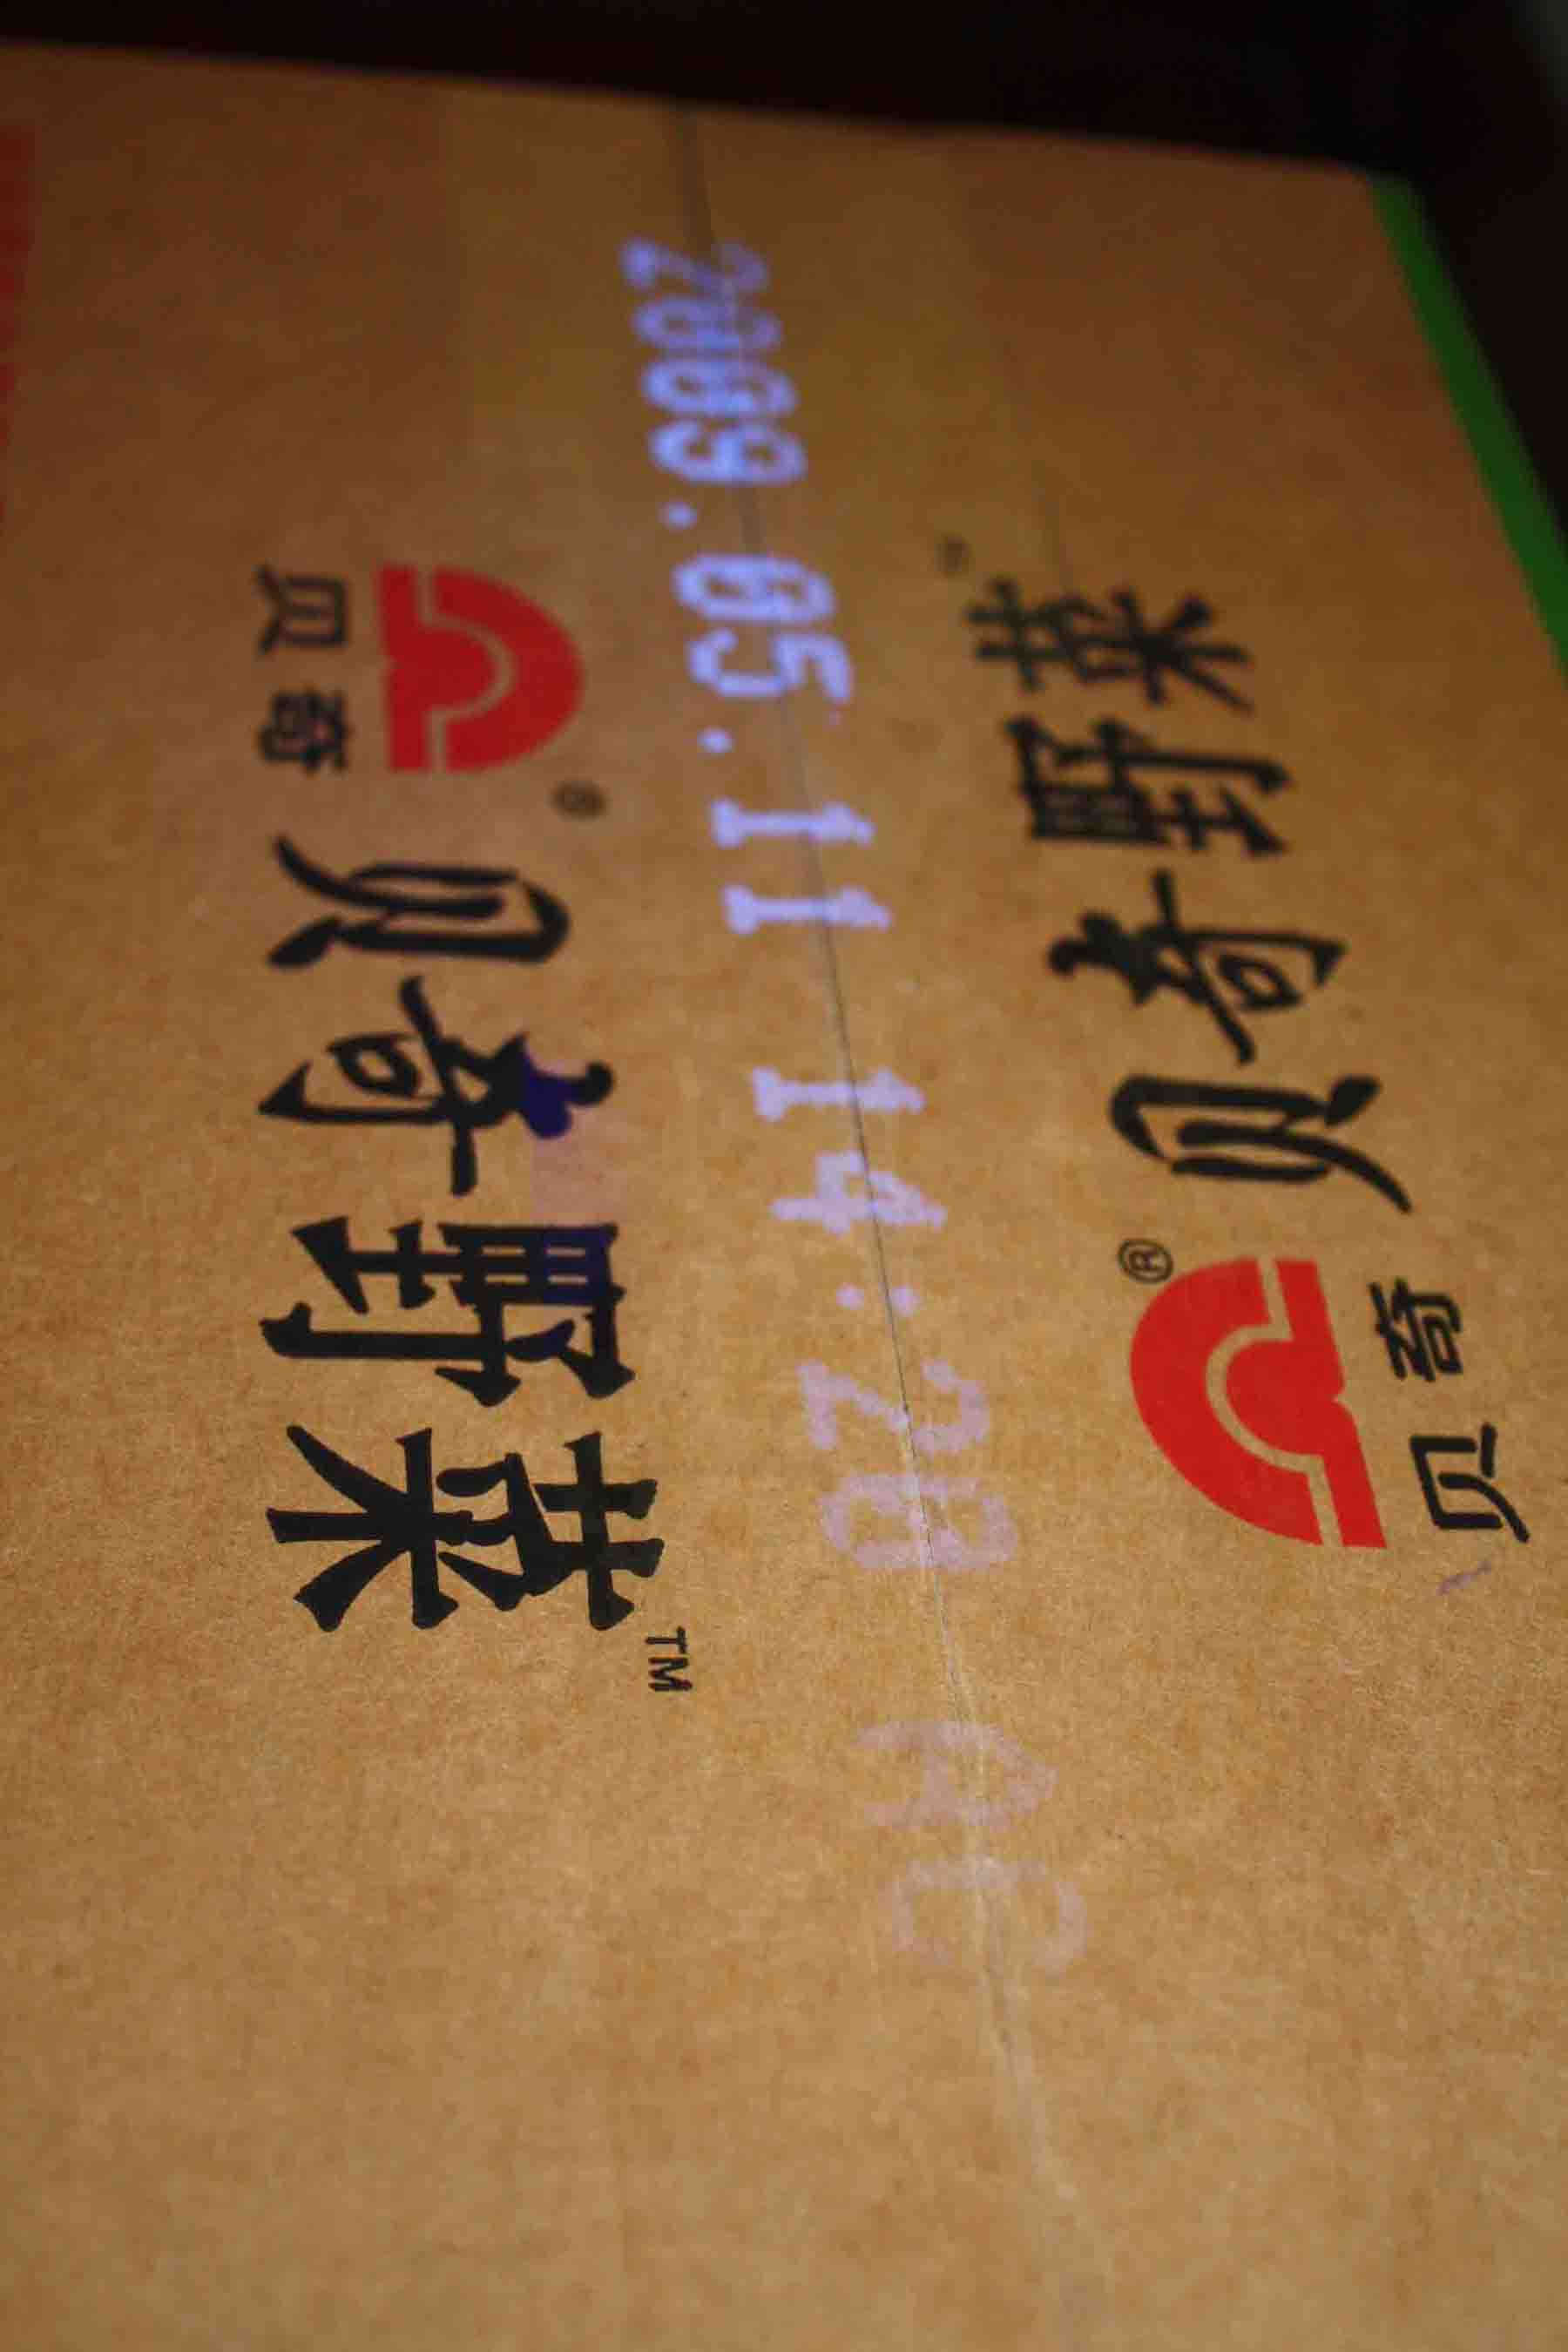 贝奇野菜™
贝奇®
2009.05.11 14:20 AC
贝奇野菜
贝奇®